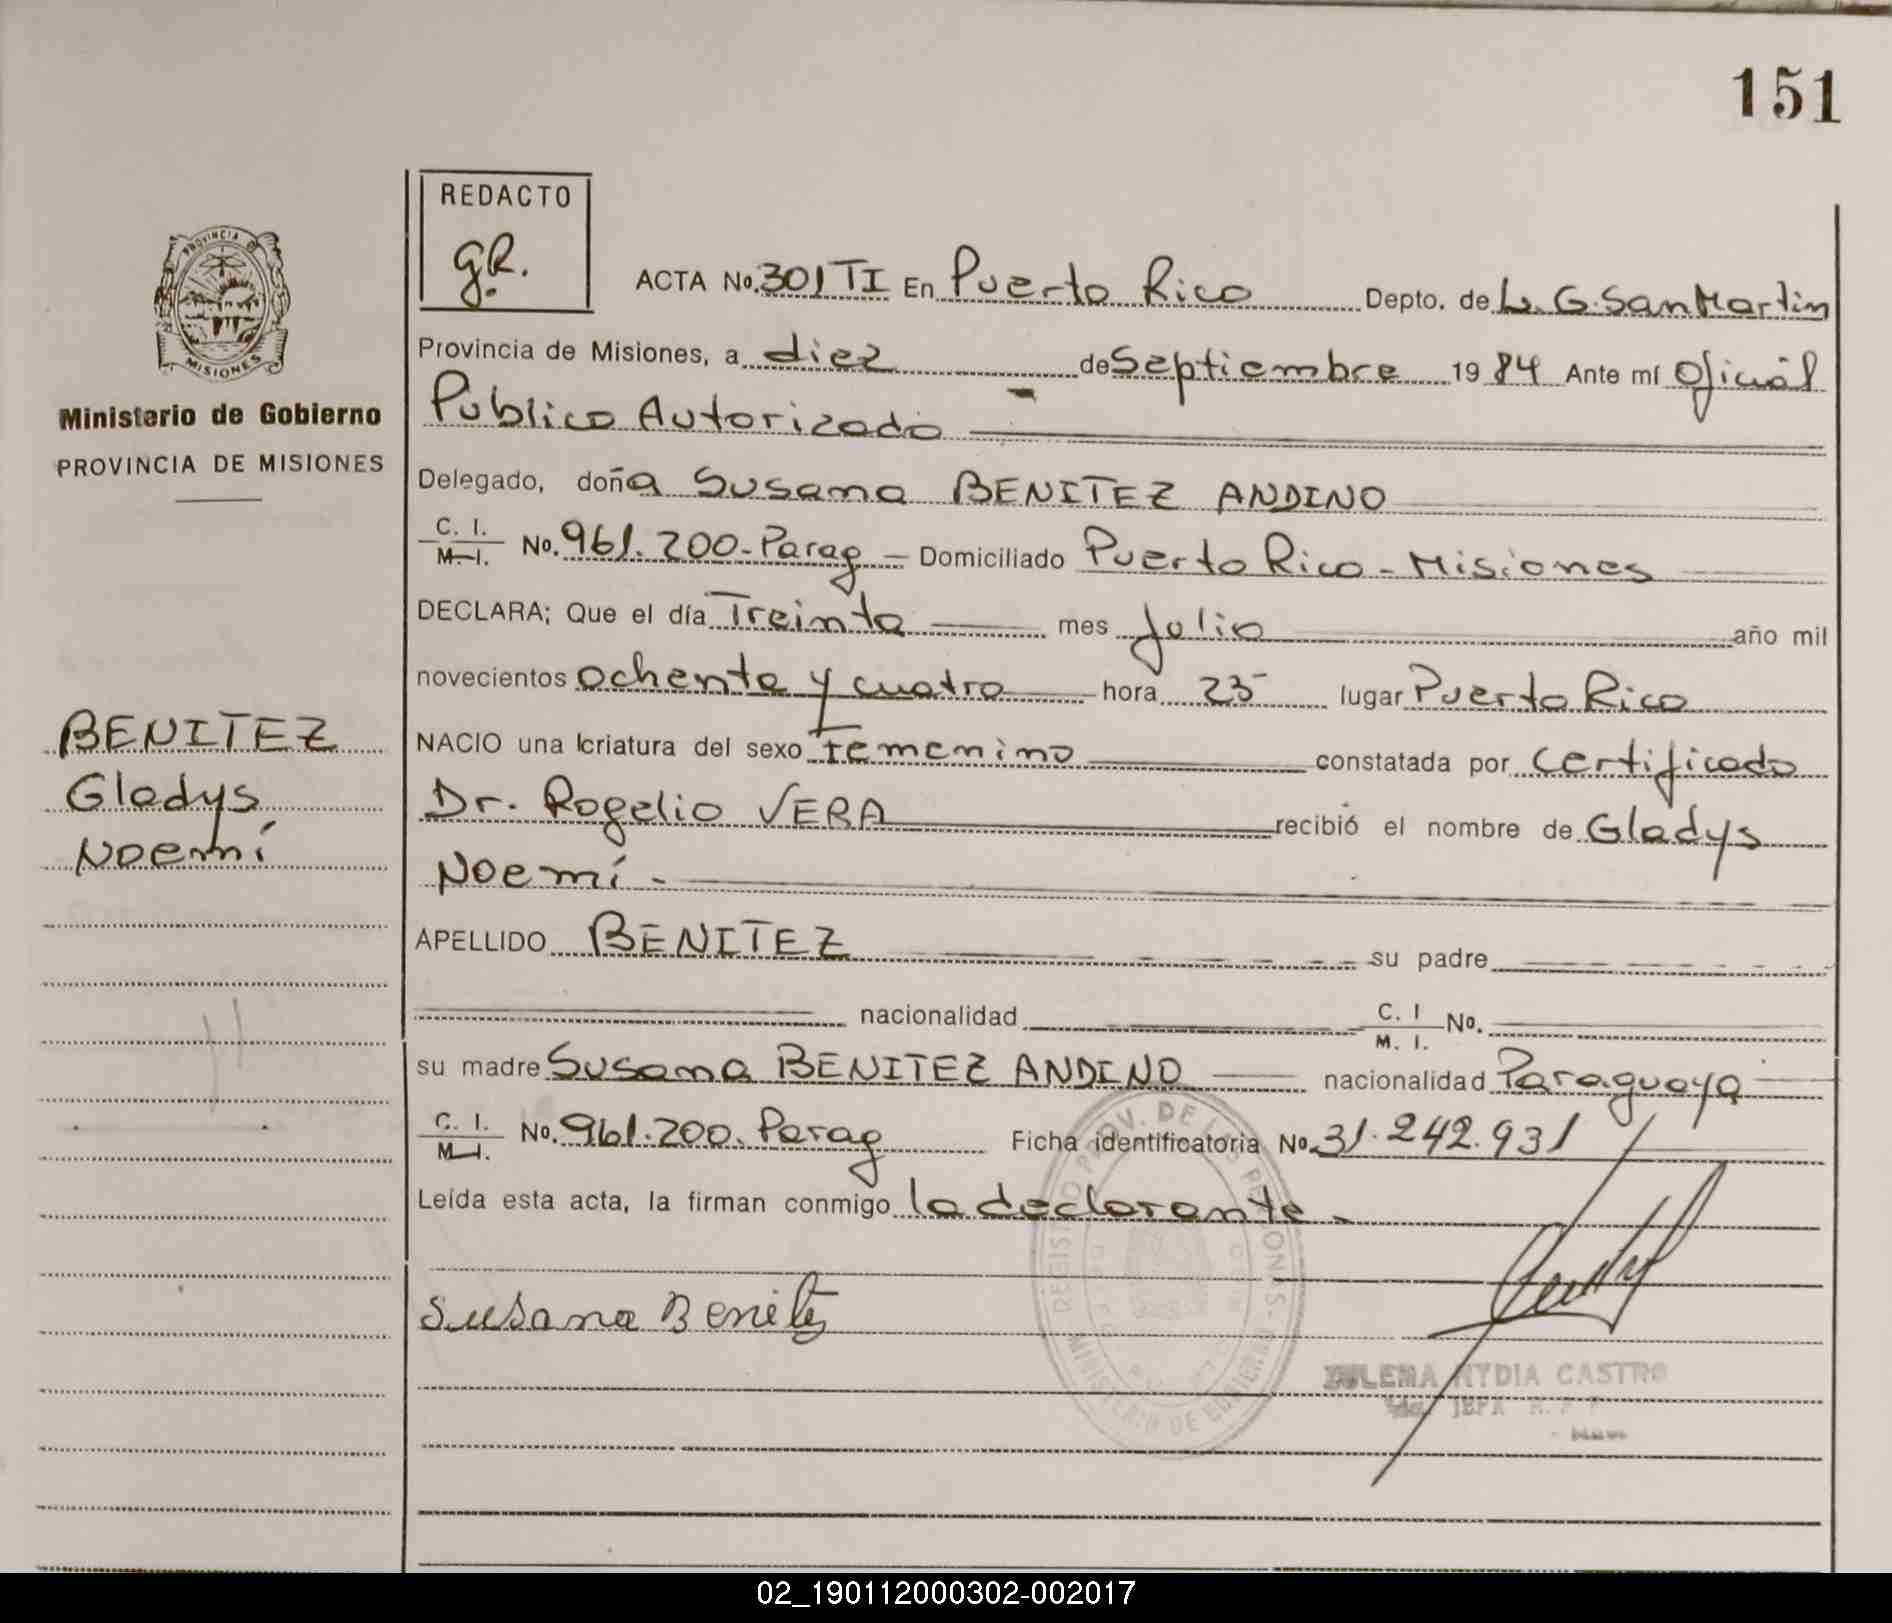 151
REDACTO
gR.
PROVINCIA DE
MISIONES
Ministerio de Gobierno
PROVINCIA DE MISIONES
ACTA No. 301 TI En Puerto Rico Depto. de L. G. San Martin
Provincia de Misiones, a diez de Septiembre 1984 Ante mí Oficial
Publico Autorizado
Delegado, doña Susana BENITEZ ANDINO
C. I. M. I. No. 961.200-Parag - Domiciliado Puerto Rico - Misiones
DECLARA; Que el día Treinta mes Julio año mil
novecientos ochenta y cuatro hora 23 lugar Puerto Rico
NACIO una criatura del sexo Femenino constatada por certificado
Dr. Rogelio VERA recibió el nombre de Gladys
Noemí -
APELLIDO BENITEZ su padre
nacionalidad C. I M. I. No.
su madre Susana BENITEZ ANDINO nacionalidad Paraguaya
C. I. M. I. No. 961.200. Parag Ficha identificatoria No. 31.242.931
Leída esta acta, la firman conmigo la declarante.
BENITEZ
Gladys
Noemí
Susana Benitez
REGISTRO PROV. DE LAS PERSONAS
MINISTERIO DE GOBIERNO
ZULEMA NYDIA CASTRO
JEFA
02_190112000302-002017